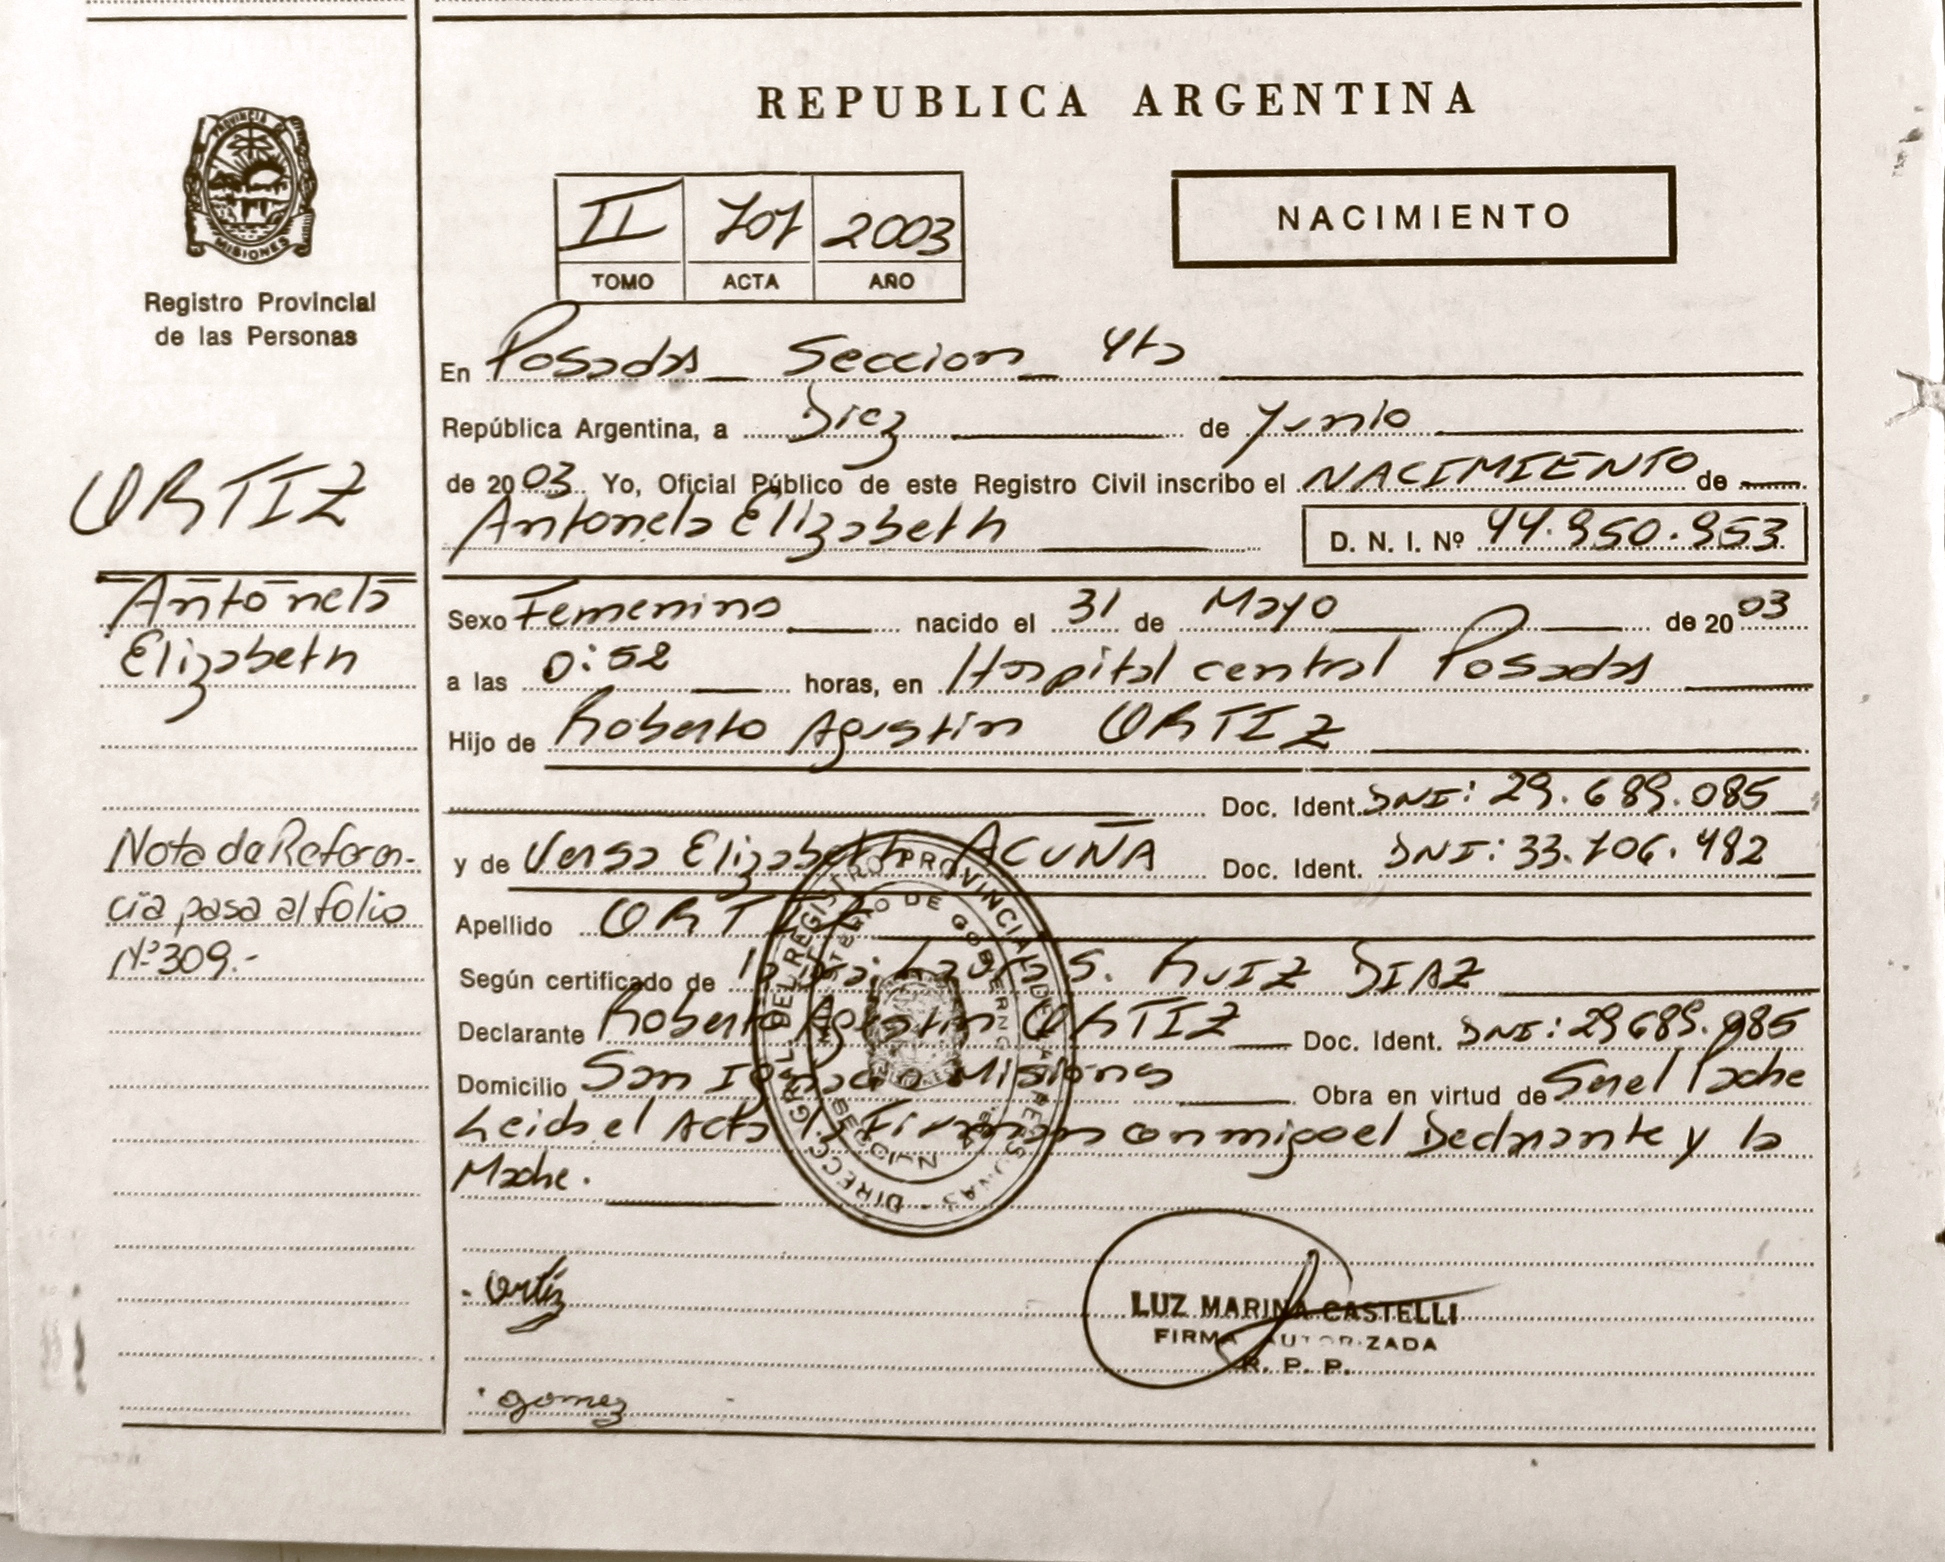 REPUBLICA ARGENTINA
PROVINCIA D MISIONES
Registro Provincial
de las Personas
II 707 2003
TOMO ACTA AÑO
NACIMIENTO
En Posadas Seccion 4ta
República Argentina, a Diez de Junio
de 2003 Yo, Oficial Público de este Registro Civil inscribo el NACIMIENTO de
Antonela Elizabeth D. N. I. Nº 44.950.953
ORTIZ
Antonela
Elizabeth
Sexo Femenino nacido el 31 de Mayo de 2003
a las 0:52 horas, en Hospital central Posadas
Hijo de Roberto Agustin ORTIZ
Doc. Ident. DNI: 29.689.085
y de Elizabeth ACUÑA Doc. Ident. DNI: 33.106.482
Apellido ORTIZ
Según certificado de la Dra: Laura S. RUIZ DIAZ
Declarante Roberto Agustin ORTIZ Doc. Ident. DNI: 29689.085
Domicilio San Ignacio Misiones Obra en virtud de Ser el Padre
Leida el Acta la Firman conmigo el Declarante y la
Madre.
Nota de Referen-
cia pasa al folio
Nº 309.-
DIRECC. GRAL. DEL REGISTRO PROVINCIAL DE LAS PERSONAS
MINISTERIO DE GOBIERNO
MISIONES
Ortiz
LUZ MARINA CASTELLI
FIRMA AUTORIZADA
R. P. P.
gomez